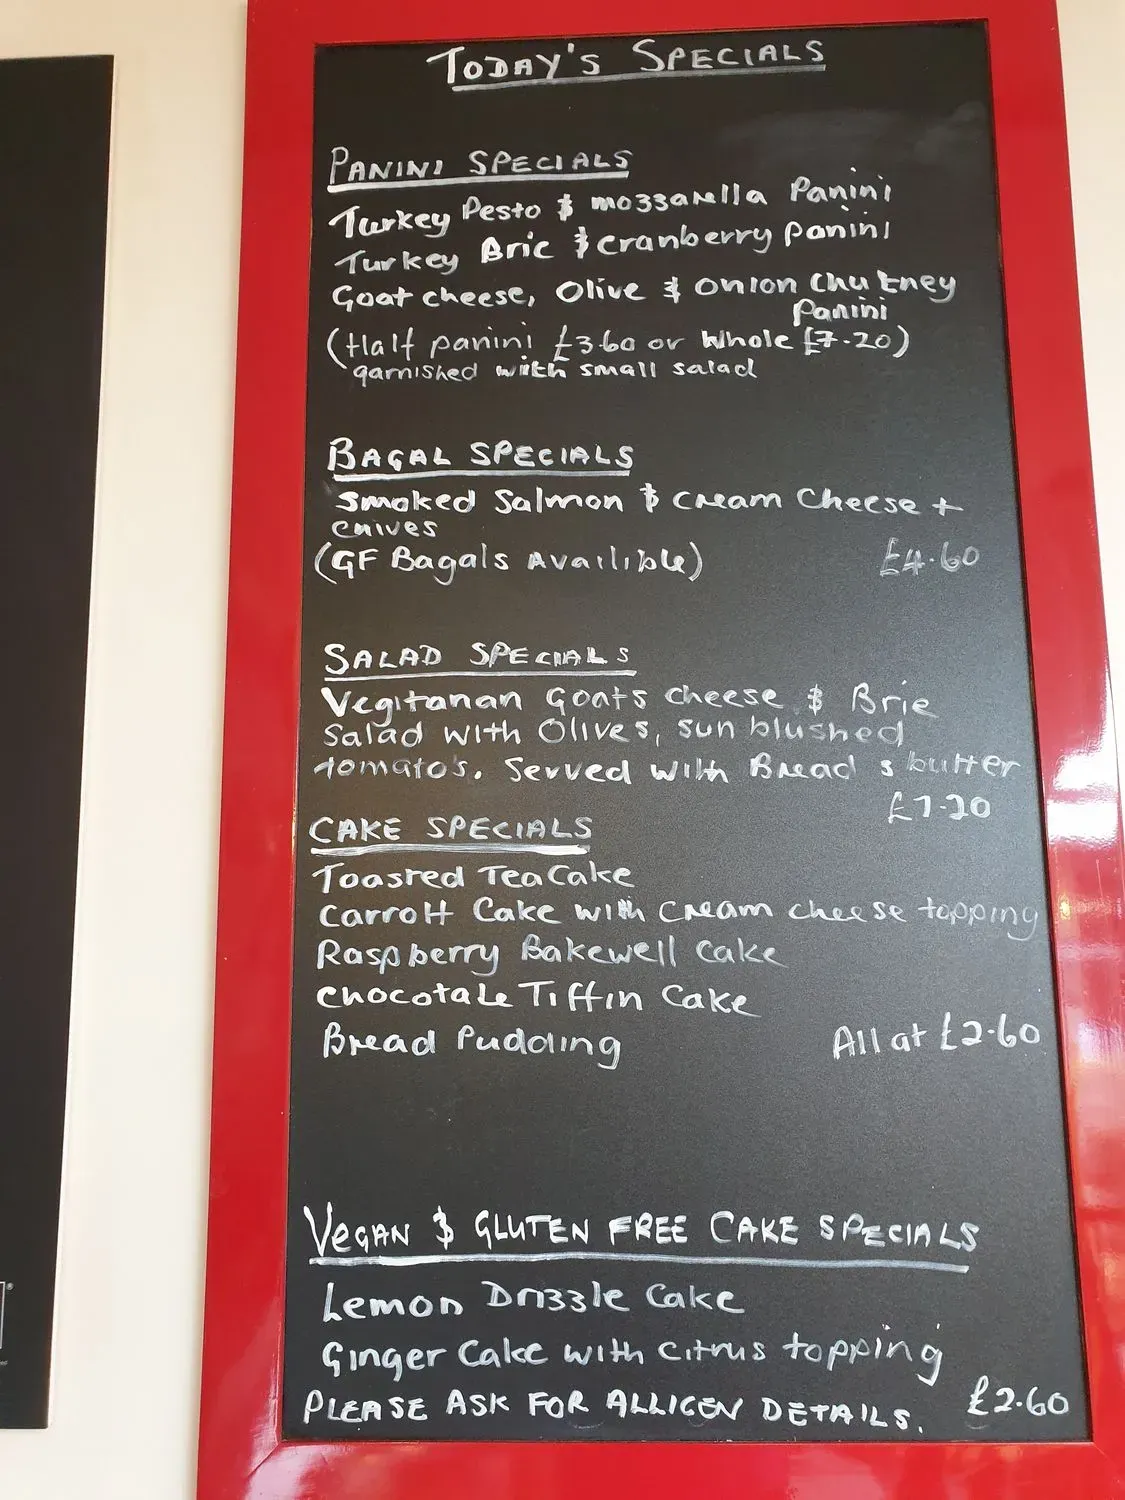 TODAY'S SPECIALS
PANINI SPECIALS
Turkey Pesto & mozzarella Panini
Turkey Brie & cranberry panini
Goat cheese, Olive & onion chutney
Panini
(Half panini £3.60 or Whole £7.20)
garnished with small salad
BAGAL SPECIALS
Smoked Salmon & cream Cheese +
chives
(GF Bagals Availible)
£4.60
SALAD SPECIALS
Vegitarian Goats cheese & Brie
Salad with Olives, sun blushed
tomato's. Served with Bread & butter
£7.20
CAKE SPECIALS
Toasted TeaCake
Carrott Cake with cream cheese topping
Raspberry Bakewell Cake
Chocolate Tiffin Cake
Bread Pudding
All at £2.60
VEGAN & GLUTEN FREE CAKE SPECIALS
Lemon Drizzle Cake
Ginger Cake with citrus topping
£2.60
PLEASE ASK FOR ALLIGEN DETAILS.